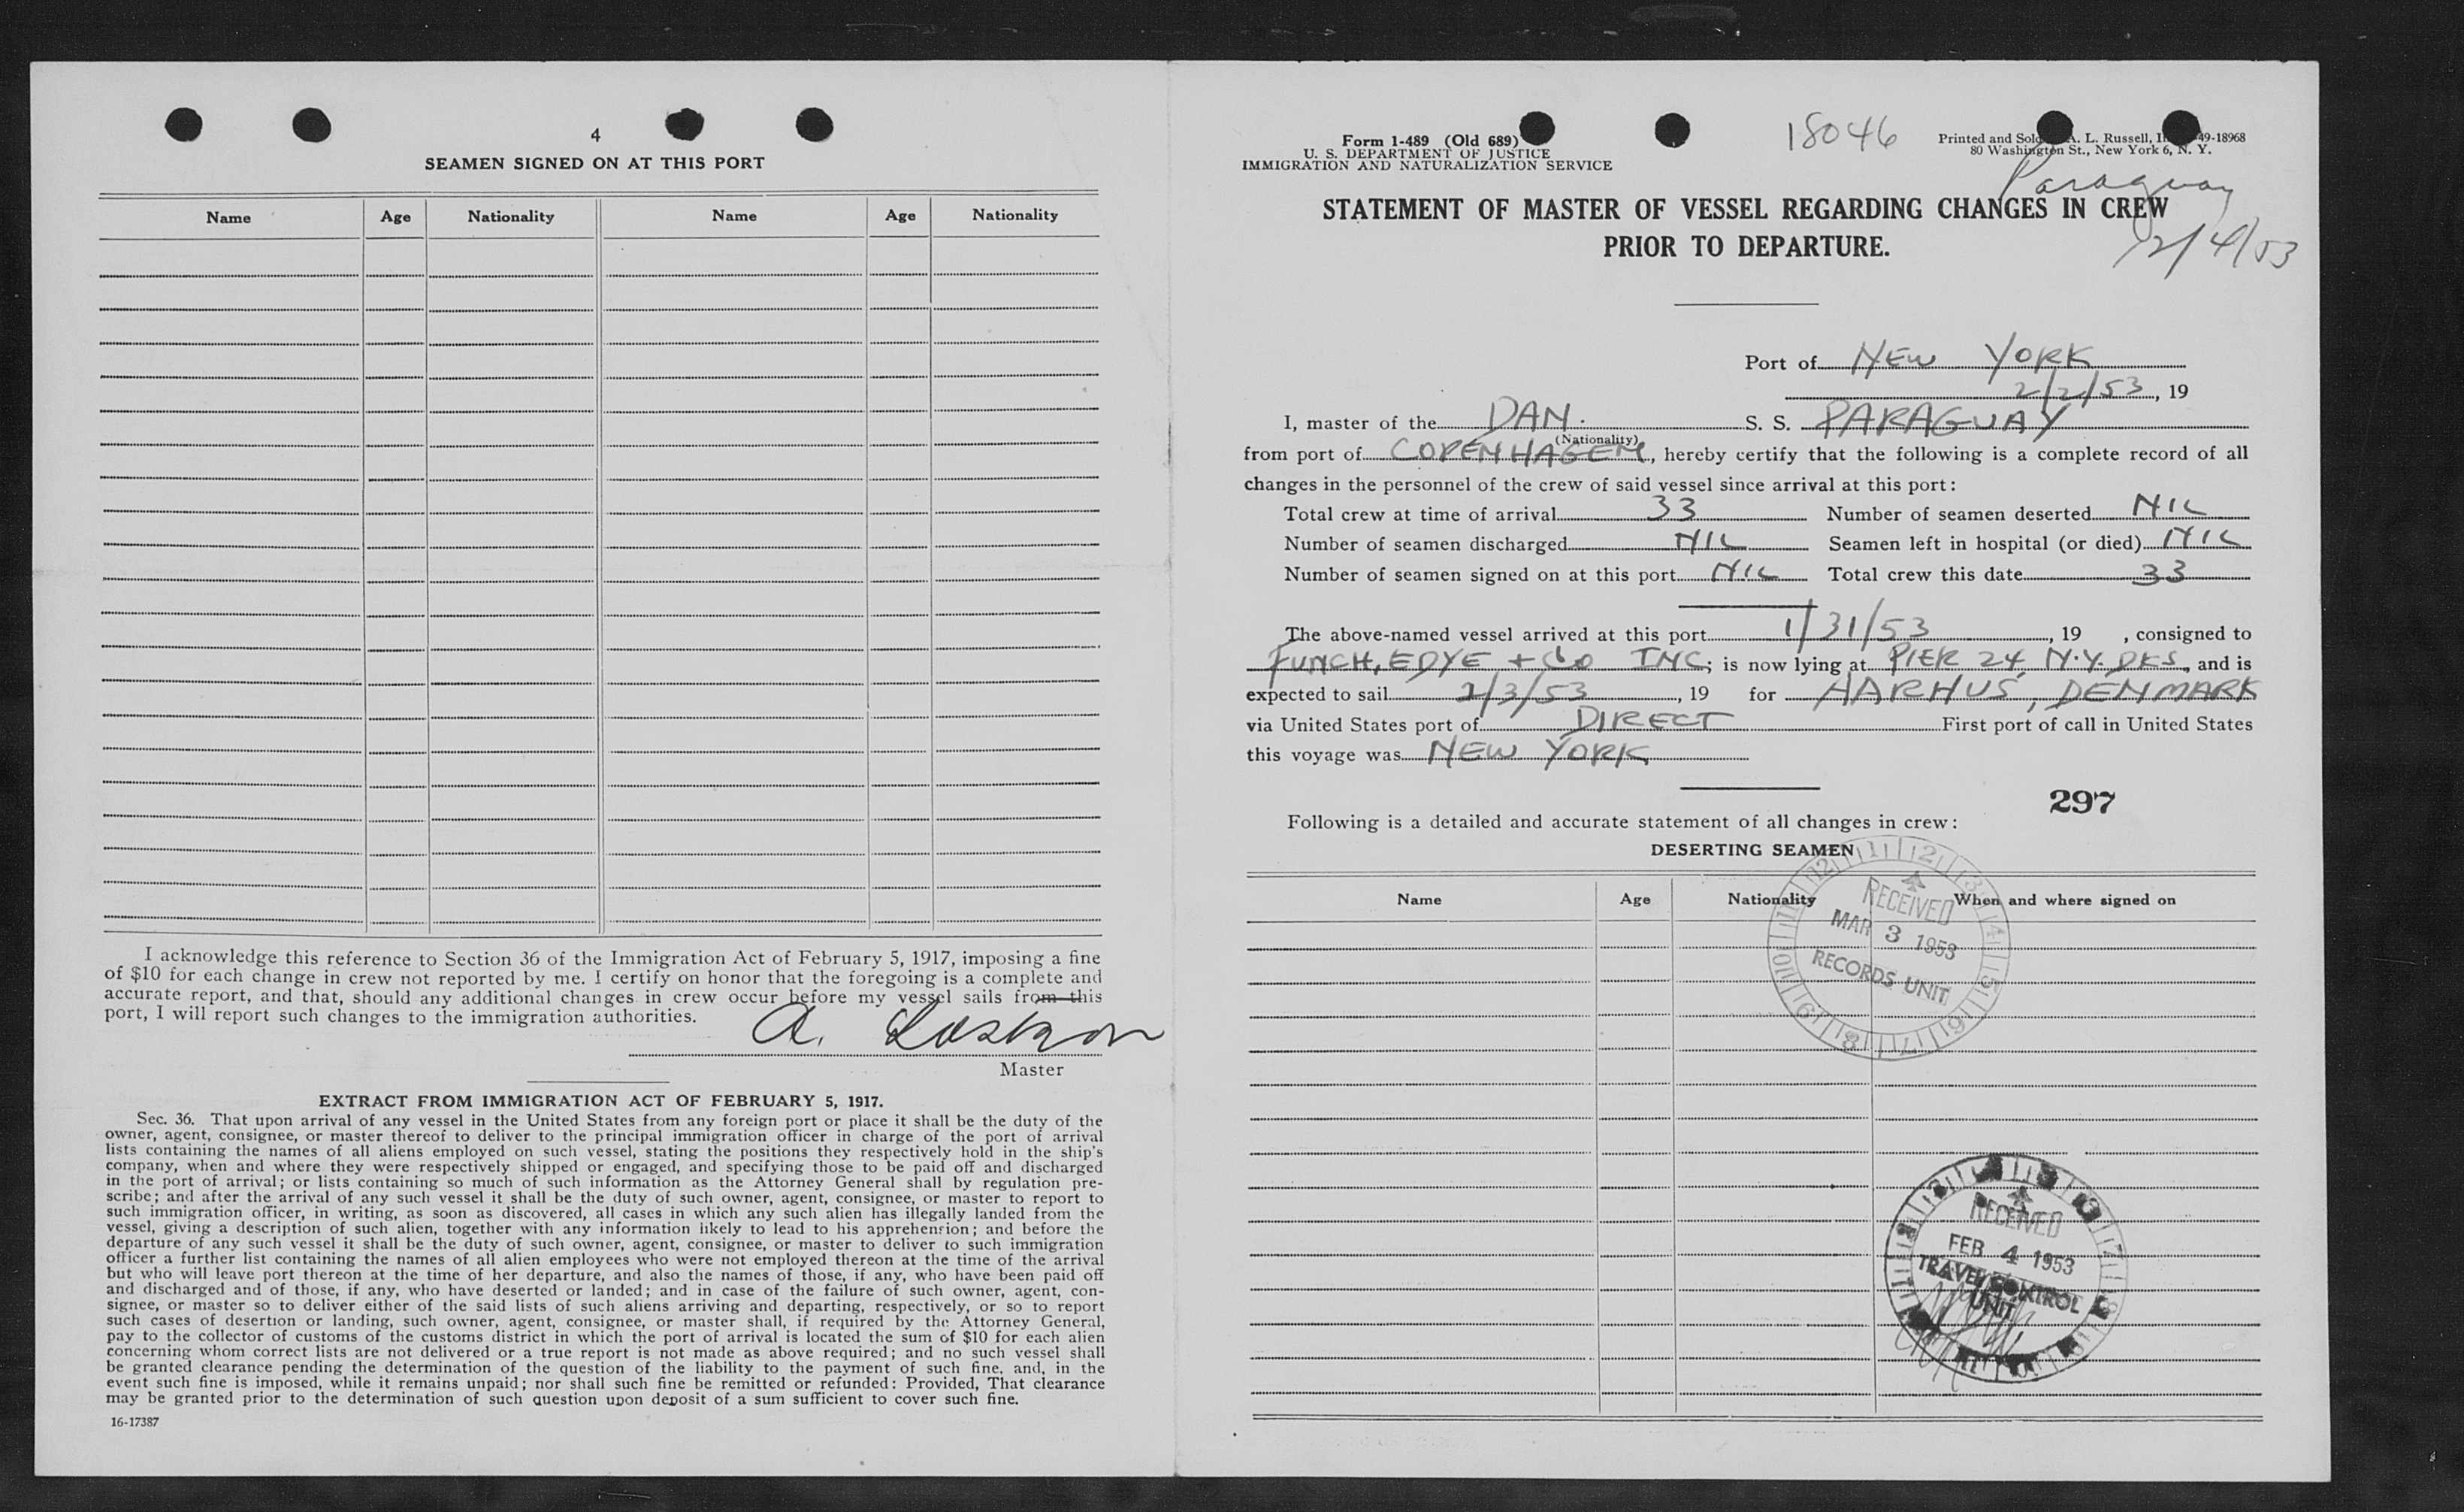 4
SEAMEN SIGNED ON AT THIS PORT
Name Age Nationality Name Age Nationality
I acknowledge this reference to Section 36 of the Immigration Act of February 5, 1917, imposing a fine
of $10 for each change in crew not reported by me. I certify on honor that the foregoing is a complete and
accurate report, and that, should any additional changes in crew occur before my vessel sails from this
port, I will report such changes to the immigration authorities.
A.
Master
EXTRACT FROM IMMIGRATION ACT OF FEBRUARY 5, 1917.
Sec. 36. That upon arrival of any vessel in the United States from any foreign port or place it shall be the duty of the
owner, agent, consignee, or master thereof to deliver to the principal immigration officer in charge of the port of arrival
lists containing the names of all aliens employed on such vessel, stating the positions they respectively hold in the ship's
company, when and where they were respectively shipped or engaged, and specifying those to be paid off and discharged
in the port of arrival; or lists containing so much of such information as the Attorney General shall by regulation pre-
scribe; and after the arrival of any such vessel it shall be the duty of such owner, agent, consignee, or master to report to
such immigration officer, in writing, as soon as discovered, all cases in which any such alien has illegally landed from the
vessel, giving a description of such alien, together with any information likely to lead to his apprehension; and before the
departure of any such vessel it shall be the duty of such owner, agent, consignee, or master to deliver to such immigration
officer a further list containing the names of all alien employees who were not employed thereon at the time of the arrival
but who will leave port thereon at the time of her departure, and also the names of those, if any, who have been paid off
and discharged and of those, if any, who have deserted or landed; and in case of the failure of such owner, agent, con-
signee, or master so to deliver either of the said lists of such aliens arriving and departing, respectively, or so to report
such cases of desertion or landing, such owner, agent, consignee, or master shall, if required by the Attorney General,
pay to the collector of customs of the customs district in which the port of arrival is located the sum of $10 for each alien
concerning whom correct lists are not delivered or a true report is not made as above required; and no such vessel shall
be granted clearance pending the determination of the question of the liability to the payment of such fine, and, in the
event such fine is imposed, while it remains unpaid; nor shall such fine be remitted or refunded: Provided, That clearance
may be granted prior to the determination of such question upon deposit of a sum sufficient to cover such fine.
16-17387
Form I-489 (Old 689)
U. S. DEPARTMENT OF JUSTICE
IMMIGRATION AND NATURALIZATION SERVICE
18046
Printed and Sold A. L. Russell, 49-18968
80 Washington St., New York 6, N. Y.
Paraguay
2/4/53
STATEMENT OF MASTER OF VESSEL REGARDING CHANGES IN CREW
PRIOR TO DEPARTURE.
Port of NEW YORK
2/2/53, 19
I, master of the DAN. S. S. PARAGUAY
(Nationality)
from port of COPENHAGEN, hereby certify that the following is a complete record of all
changes in the personnel of the crew of said vessel since arrival at this port:
Total crew at time of arrival 33 Number of seamen deserted NIL
Number of seamen discharged NIL Seamen left in hospital (or died) NIL
Number of seamen signed on at this port NIL Total crew this date 33
The above-named vessel arrived at this port 1/31/53, 19 , consigned to
FUNCH, EDYE + Co INC; is now lying at PIER 24 N.Y. DKS, and is
expected to sail 2/3/53, 19 for AARHUS, DENMARK
via United States port of DIRECT First port of call in United States
this voyage was NEW YORK
297
Following is a detailed and accurate statement of all changes in crew:
DESERTING SEAMEN
Name Age Nationality When and where signed on
RECEIVED
MAR 3 1953
RECORDS UNIT
RECEIVED
FEB 4 1953
TRAVEL CONTROL
UNIT